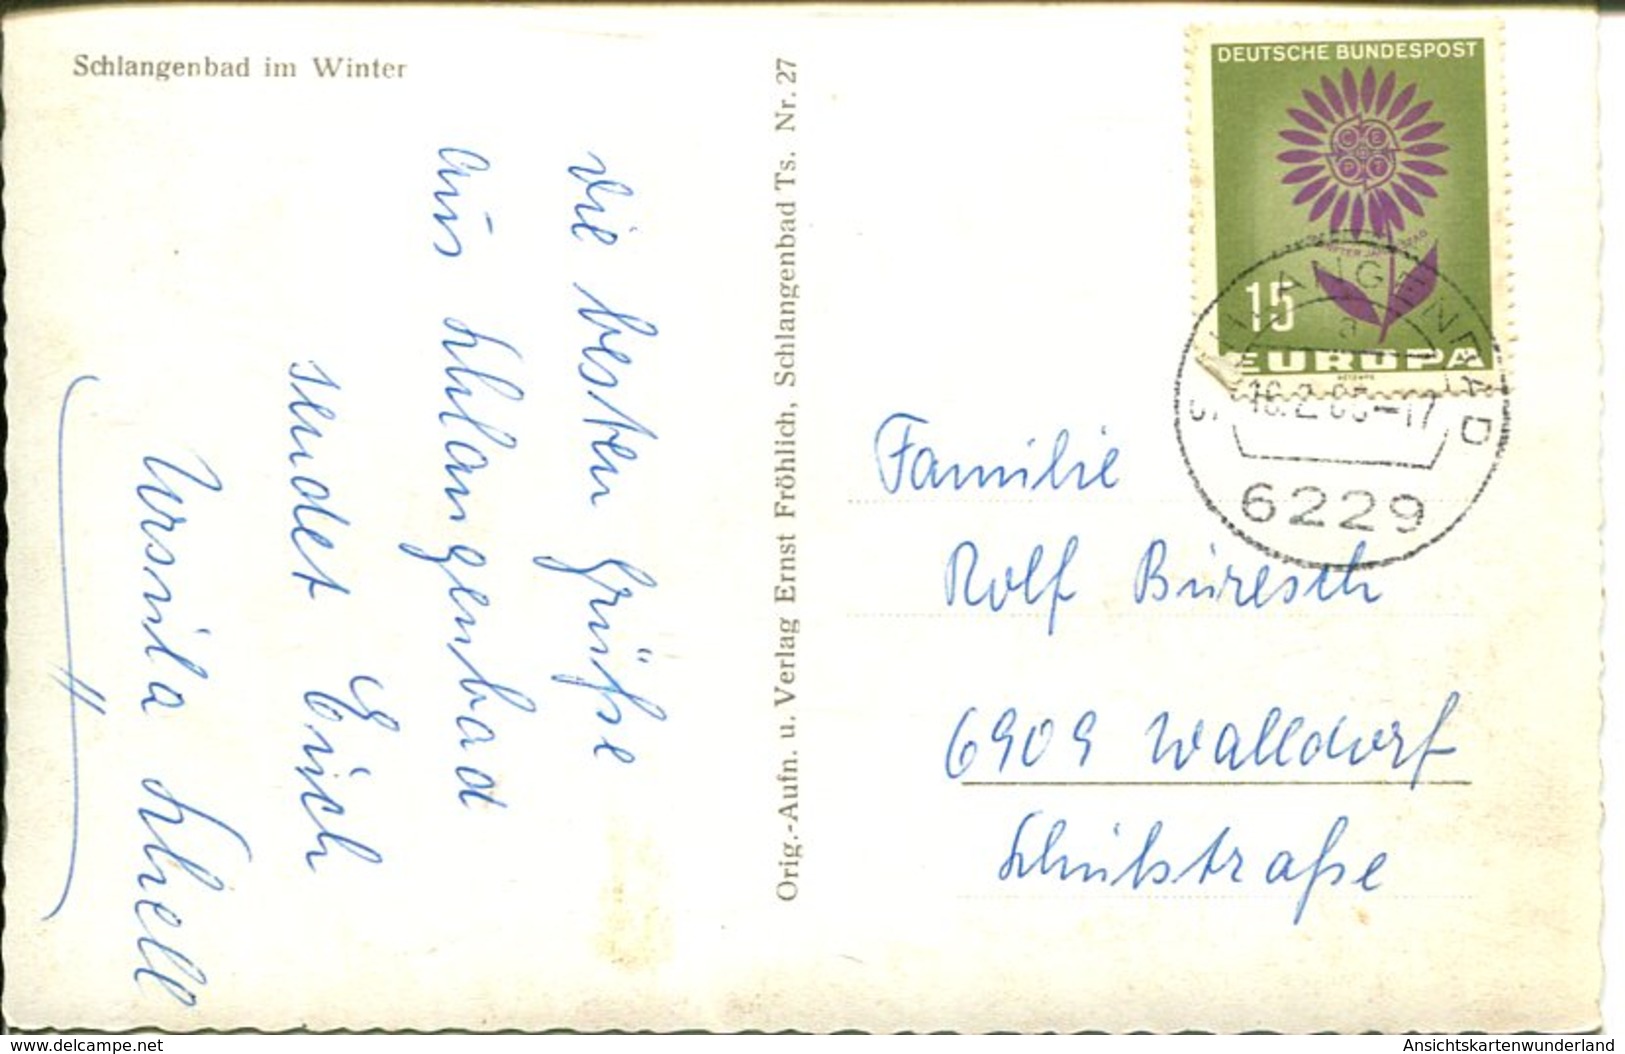 Schlangenbad im Winter
Die besten Grüße
aus Schlangenbad
sendet Euch
Ursula Schnell
Orig.-Aufn. u. Verlag Ernst Fröhlich, Schlangenbad Ts. Nr. 27
DEUTSCHE BUNDESPOST
CEPT
15
EUROPA
SCHLANGENBAD
a
16.2.65-17
6229
Familie
Rolf Büresch
6909 Walldorf
Schulstraße
www.delcampe.net
Ansichtskartenwunderland